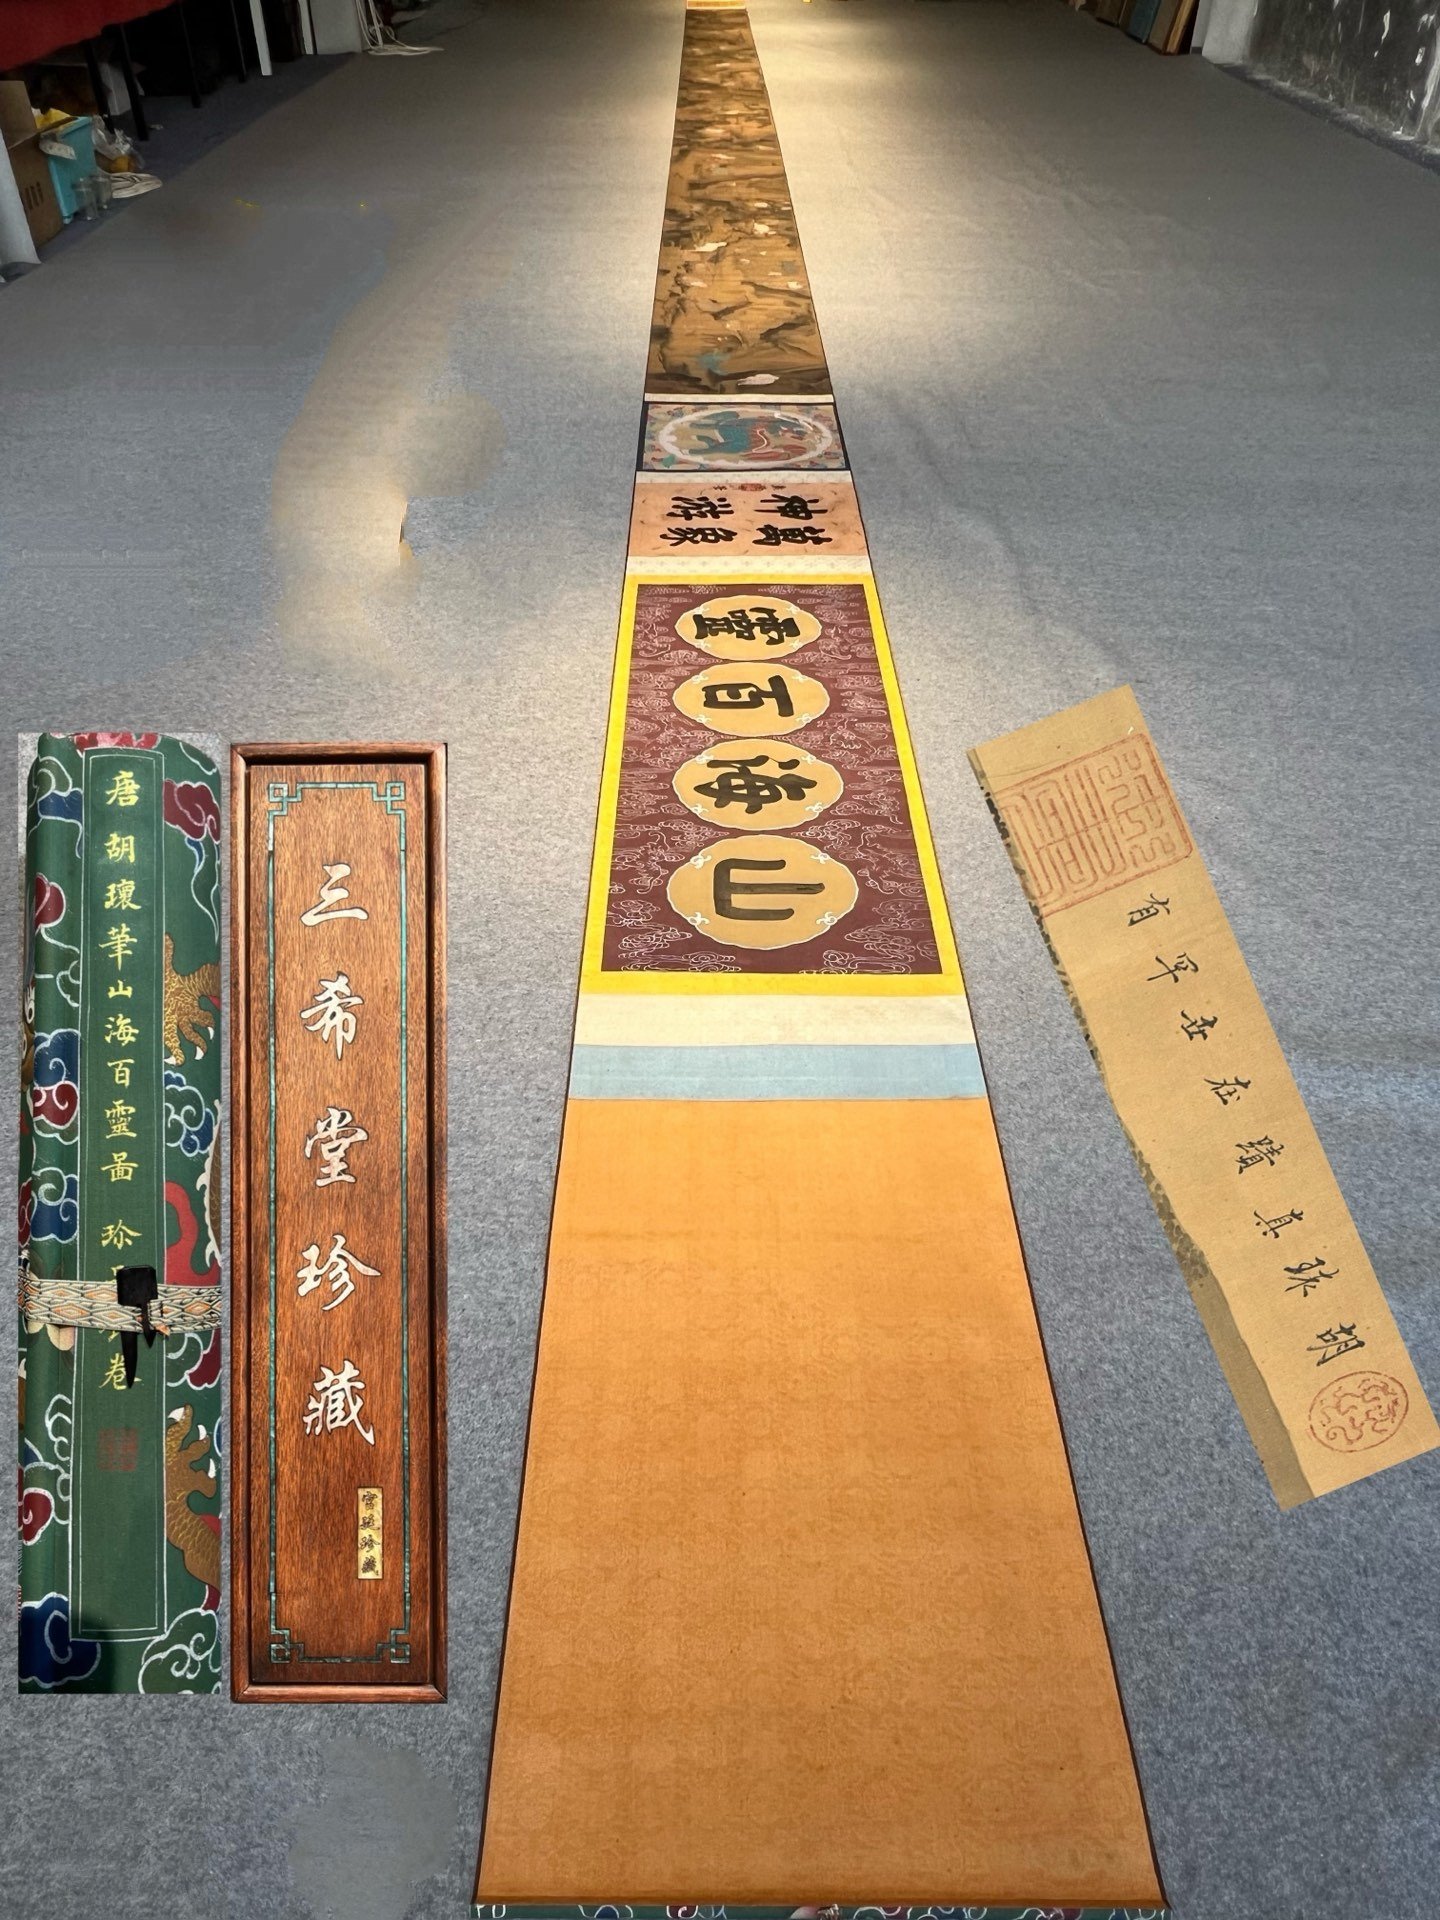 唐 胡瓌筆山海百靈啚 珍
卷
三希堂珍藏
宮廷珍藏
山海百靈
萬象
神游
胡球真蹟在世罕有